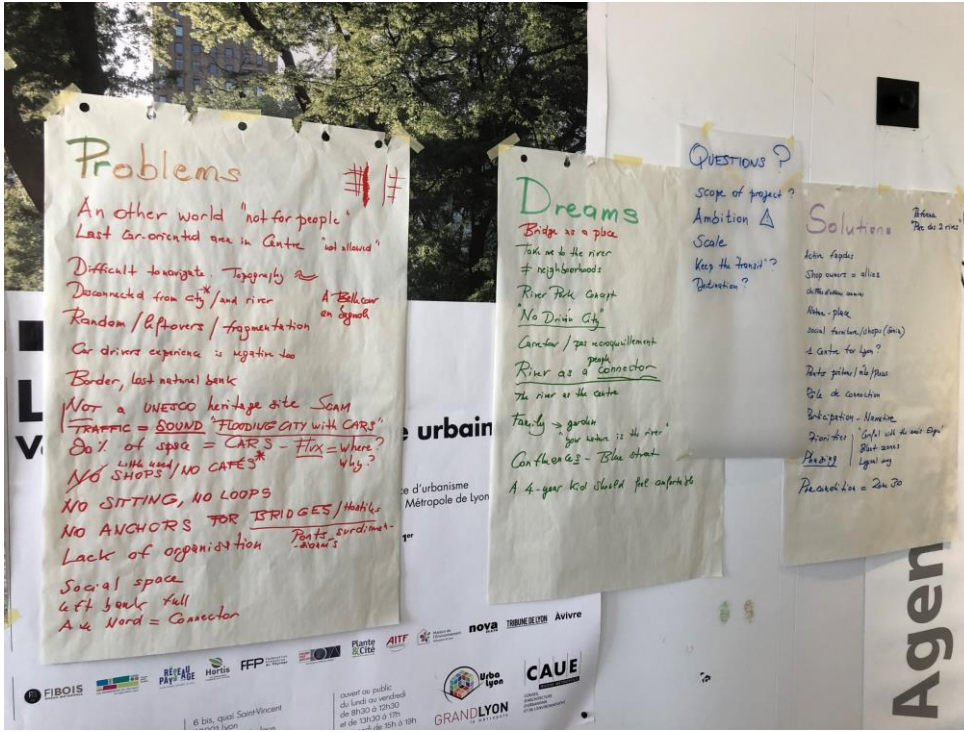 Problems
An other world "not for people"
Last car-oriented area in Centre "not allowed"
Difficult to navigate. Topography
Disconnected from city* / and river
A Bellecour
Random / leftovers / fragmentation
Car drivers experience is negative too
Border, lost natural bank
NOT a UNESCO heritage site SCAM
TRAFFIC = SOUND "FLOODING CITY with CARS"
80% of space = CARS - Flux = where?
why?
little used
NO SHOPS / NO CAFÉS*
NO SITTING, NO LOOPS
NO ANCHORS FOR BRIDGES / Hostiles
Ponts surdimen-
Lack of organisation
Social space
Left bank full
Axe Nord = Connector
Dreams
Bridge as a place
Take me to the river
≠ neighbourhoods
River Park Concept
"No Drivin City"
people
River as a connector
The river as the centre
Family → garden
"your nature is the river"
Confluences - Blue street
A 4-year kid should feel comfortable
QUESTIONS ?
Scope of project ?
Ambition
Scale
Keep the transit" ?
Destination ?
Solutions
"Parc des 2 rives"
Active façades
Shop owners = allies
Nature - place
social furniture / shops
1 Centre for Lyon ?
Pôle de connection
Participation - Narrative
Priorities
Phasing
Blast zones
Precondition = Zone 30
L
V
e urbain
ce d'urbanisme
Métropole de Lyon
1er
FIBOIS
RÉSEAU
PAYSAGE
Hortis
FFP
Plante
& Cité
AITF
nova
TRIBUNE DE LYON
Àvivre
Urba
Lyon
GRANDLYON
la métropole
CAUE
6 bis, quai Saint-Vincent
ouvert au public
du lundi au vendredi
de 8h30 à 12h30
et de 13h30 à 17h
de 15h à 19h
Agen